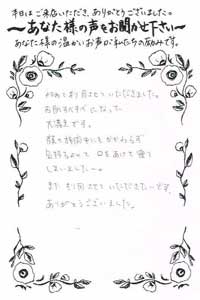 本日はご来店いただき、ありがとうございました。
〜あなた様の声をお聞かせ下さい〜
あなた様の温かいお声が私たちの励みです。
初めて利用させていただきました。
お肌すべすべになって
大満足です。
顔の施術中にもかかわらず
気持ちよくて 口をあけて寝て
しまいました〜
また 利用させていただきたいです。
ありがとうございました。